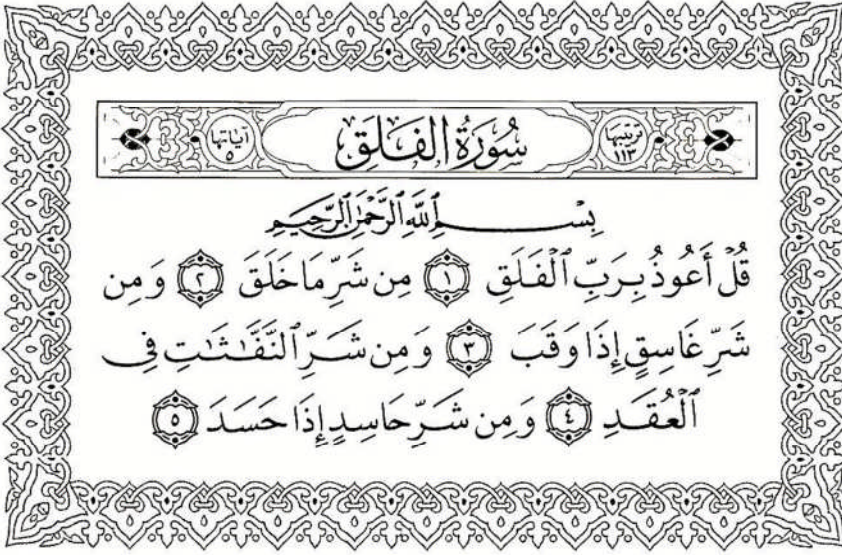 ترتيبها ١١٣ سُورَةُ الْفَلَقِ آياتها ٥
بِسْمِ ٱللَّهِ ٱلرَّحْمَٰنِ ٱلرَّحِيمِ
قُلْ أَعُوذُ بِرَبِّ ٱلْفَلَقِ ١ مِن شَرِّ مَا خَلَقَ ٢ وَمِن
شَرِّ غَاسِقٍ إِذَا وَقَبَ ٣ وَمِن شَرِّ ٱلنَّفَّٰثَٰتِ فِى
ٱلْعُقَدِ ٤ وَمِن شَرِّ حَاسِدٍ إِذَا حَسَدَ ٥